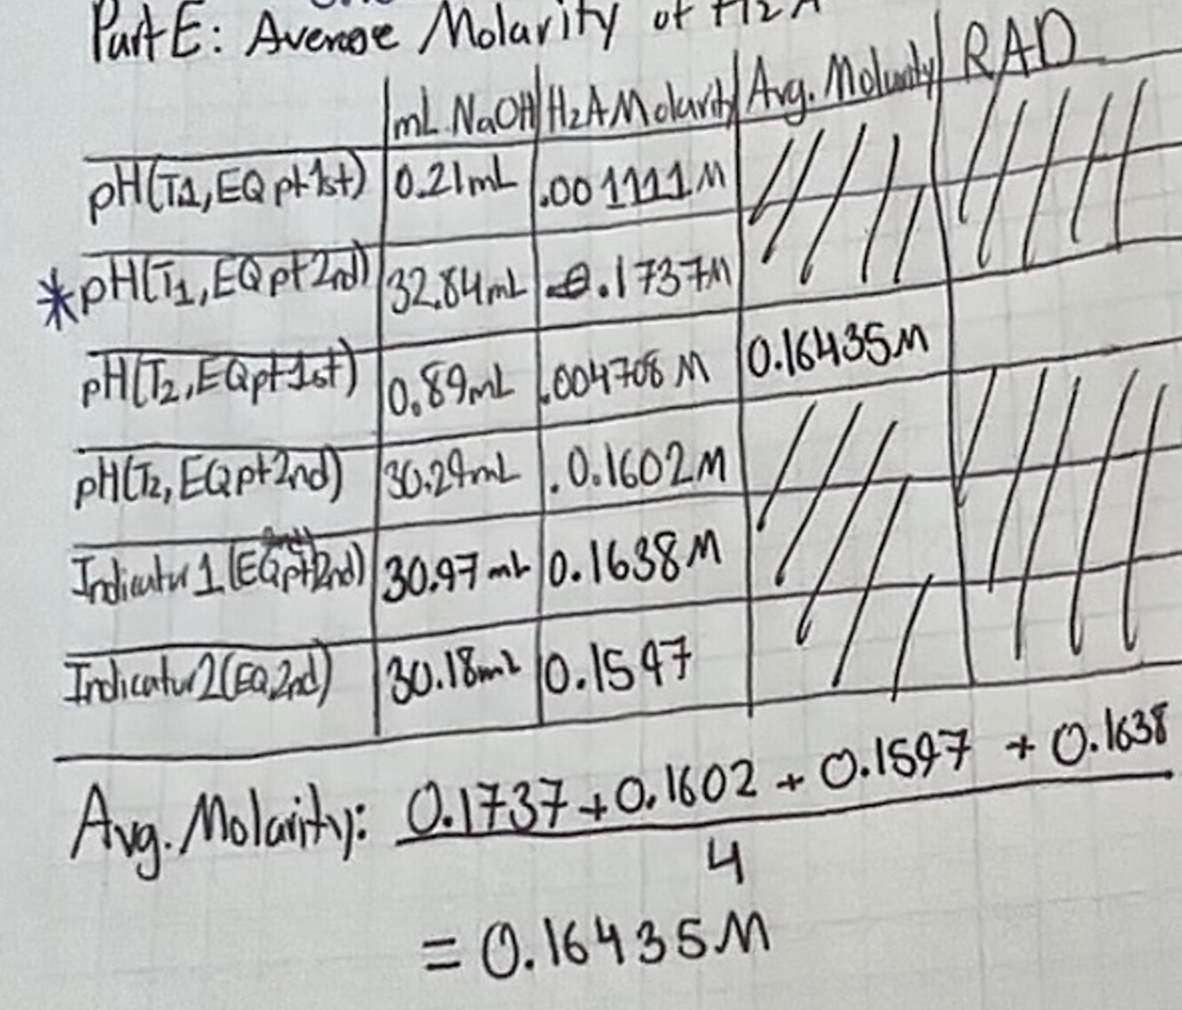 Part E: Average Molarity of H2A
mL NaOH H2A Molarity Avg. Molarity RAD
pH(T1, EQ pt 1st) 0.21mL .001111M
*pH(T1, EQ pt 2nd) 32.84mL .1737M
pH(T2, EQ pt 1st) 0.89mL .004708M 0.16435M
pH(T2, EQ pt 2nd) 30.29mL .0.1602M
Indicator 1 (EQ pt 2nd) 30.97mL 0.1638M
Indicator 2 (EQ 2nd) 30.18mL 0.1597
Avg. Molarity: 0.1737 + 0.1602 + 0.1597 + 0.1638
4
= 0.16435M